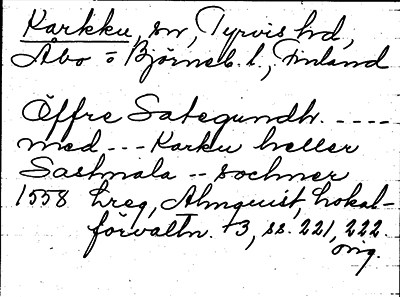 Karkku, sn, Tyrvis hd,
Åbo o Björneb. l., Finland
Öffre Sategundh. -----
med --- Karku heller
Sastmala -- sochner
1558 hreg, Almquist, Lokal-
förvaltn. +3, ss. 221, 222.
orig.